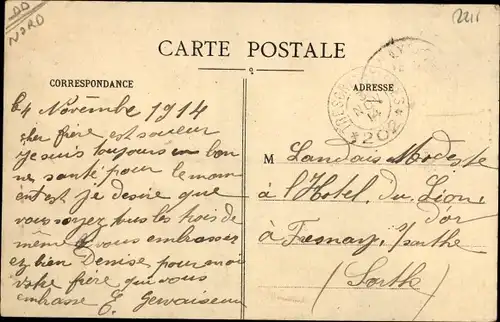 DD
NORD
2211
CARTE POSTALE
CORRESPONDANCE
ADRESSE
Le 4 Novembre 1914
cher frère est soeur
je suis toujours en bon
ne santé pour le mom
ent est je desire que
vous soyez tous les trois de
même vous embrassez
ez bien Denise pour moi
votre frère qui vous
embrasse E. Gervaiseau
TRESOR
* 202 *
M Landais Modeste
à l'Hotel du Lion
d'or
à Fresnay s/sarthe
(Sarthe)